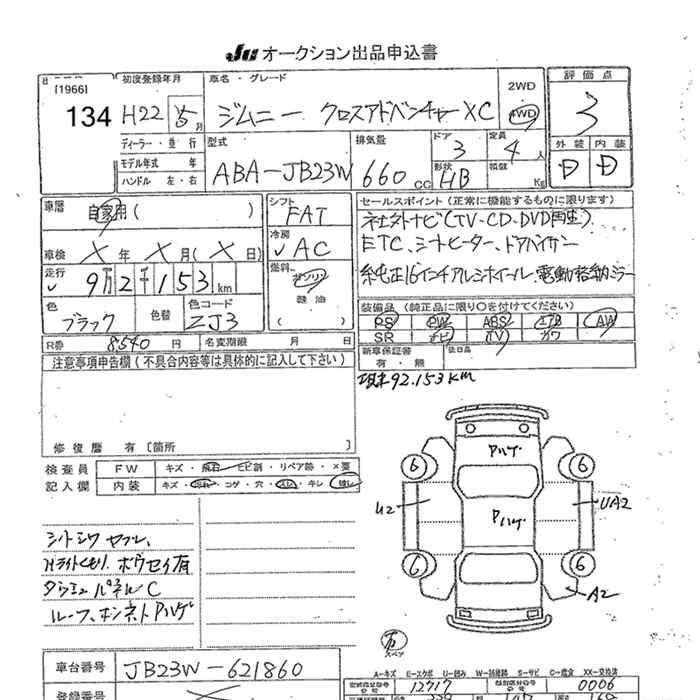 JU オークション出品申込書
[1966]
134
初度登録年月
H22 5月
車名・グレード
ジムニー クロスアドベンチャーXC
2WD
4WD
評価点
3
ディーラー・並行
モデル年式 年
ハンドル 左・右
型式
ABA-JB23W
排気量
660 CC
ドア
3
形状
HB
定員
4 人
積載
Kg
外装 内装
D D
車歴
自家用( )
車検 X 年 X 月( X 日)
走行
9万2千153km
色
ブラック
色替
色コード
ZJ3
シフト
FAT
冷房
AC
燃料
ガソリン
軽油
( )
セールスポイント(正常に機能するものに限ります)
ETC、シートヒーター、ドアバイザー
純正16インチアルミホイール、電動格納ミラー
装備品(純正品に限り○を付けてください)
PS PW ABS エアB AW
SR ナビ TV カワ
R券 8540 円
名変期限 月 日
新車保証書
有・無
後日品
注意事項申告欄(不具合内容等は具体的に記入して下さい)
現車92,153km
修復歴 有[箇所 ]
検査員
記入欄
FW キズ・飛石・ヒビ割・リペア跡・×要
内装 キズ・汚れ・コゲ・穴・スレ・キレ・破レ
シートシワ ヤブレ、
Hライトくもり、ボウセイ有
ダッシュパネルC
ルーフ、ボンネトAハゲ
Aハゲ
Aハゲ
6 6
6 6
U2
UA2
A2
スペア
車台番号 JB23W-621860
登録番号
A-キズ E-エクボ U-凹み W-補修跡 S-サビ C-腐食 XX-交換済
12717
0006